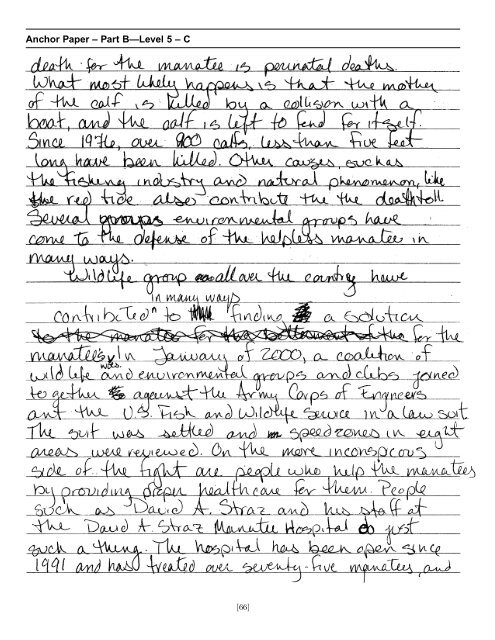 Anchor Paper – Part B—Level 5 – C
death for the manatee is perinatal deaths.
What most likely happens is that the mother
of the calf is killed by a collision with a
boat, and the calf is left to fend for itself.
Since 1976, over 800 calfs, less than five feet
long have been killed. Other causes, such as
the fishing industry and natural phenomenon, like
the red tide also contribute the the deathtoll.
Several groups environmental groups have
come to the defense of the helpless manatee in
many ways.
Wildlife group all over the country have
in many ways
contributed to finding a solution
to the manatee for the betterment of the for the
manatees. In January of 2000, a coalition of
wild life and environmental groups and clubs joined
together against the Army Corps of Engineers
ant the U.S. Fish and Wildlife Service in a law suit.
The suit was settled and speedzones in eight
areas were reviewed. On the more inconspicous
side of the fight are people who help the manatees
by providing proper healthcare for them. People
such as David A. Straz and his staff at
the David A. Straz Manatee Hospital do just
such a thing. The hospital has been open since
1991 and has treated over seventy-five manatees, and
[66]